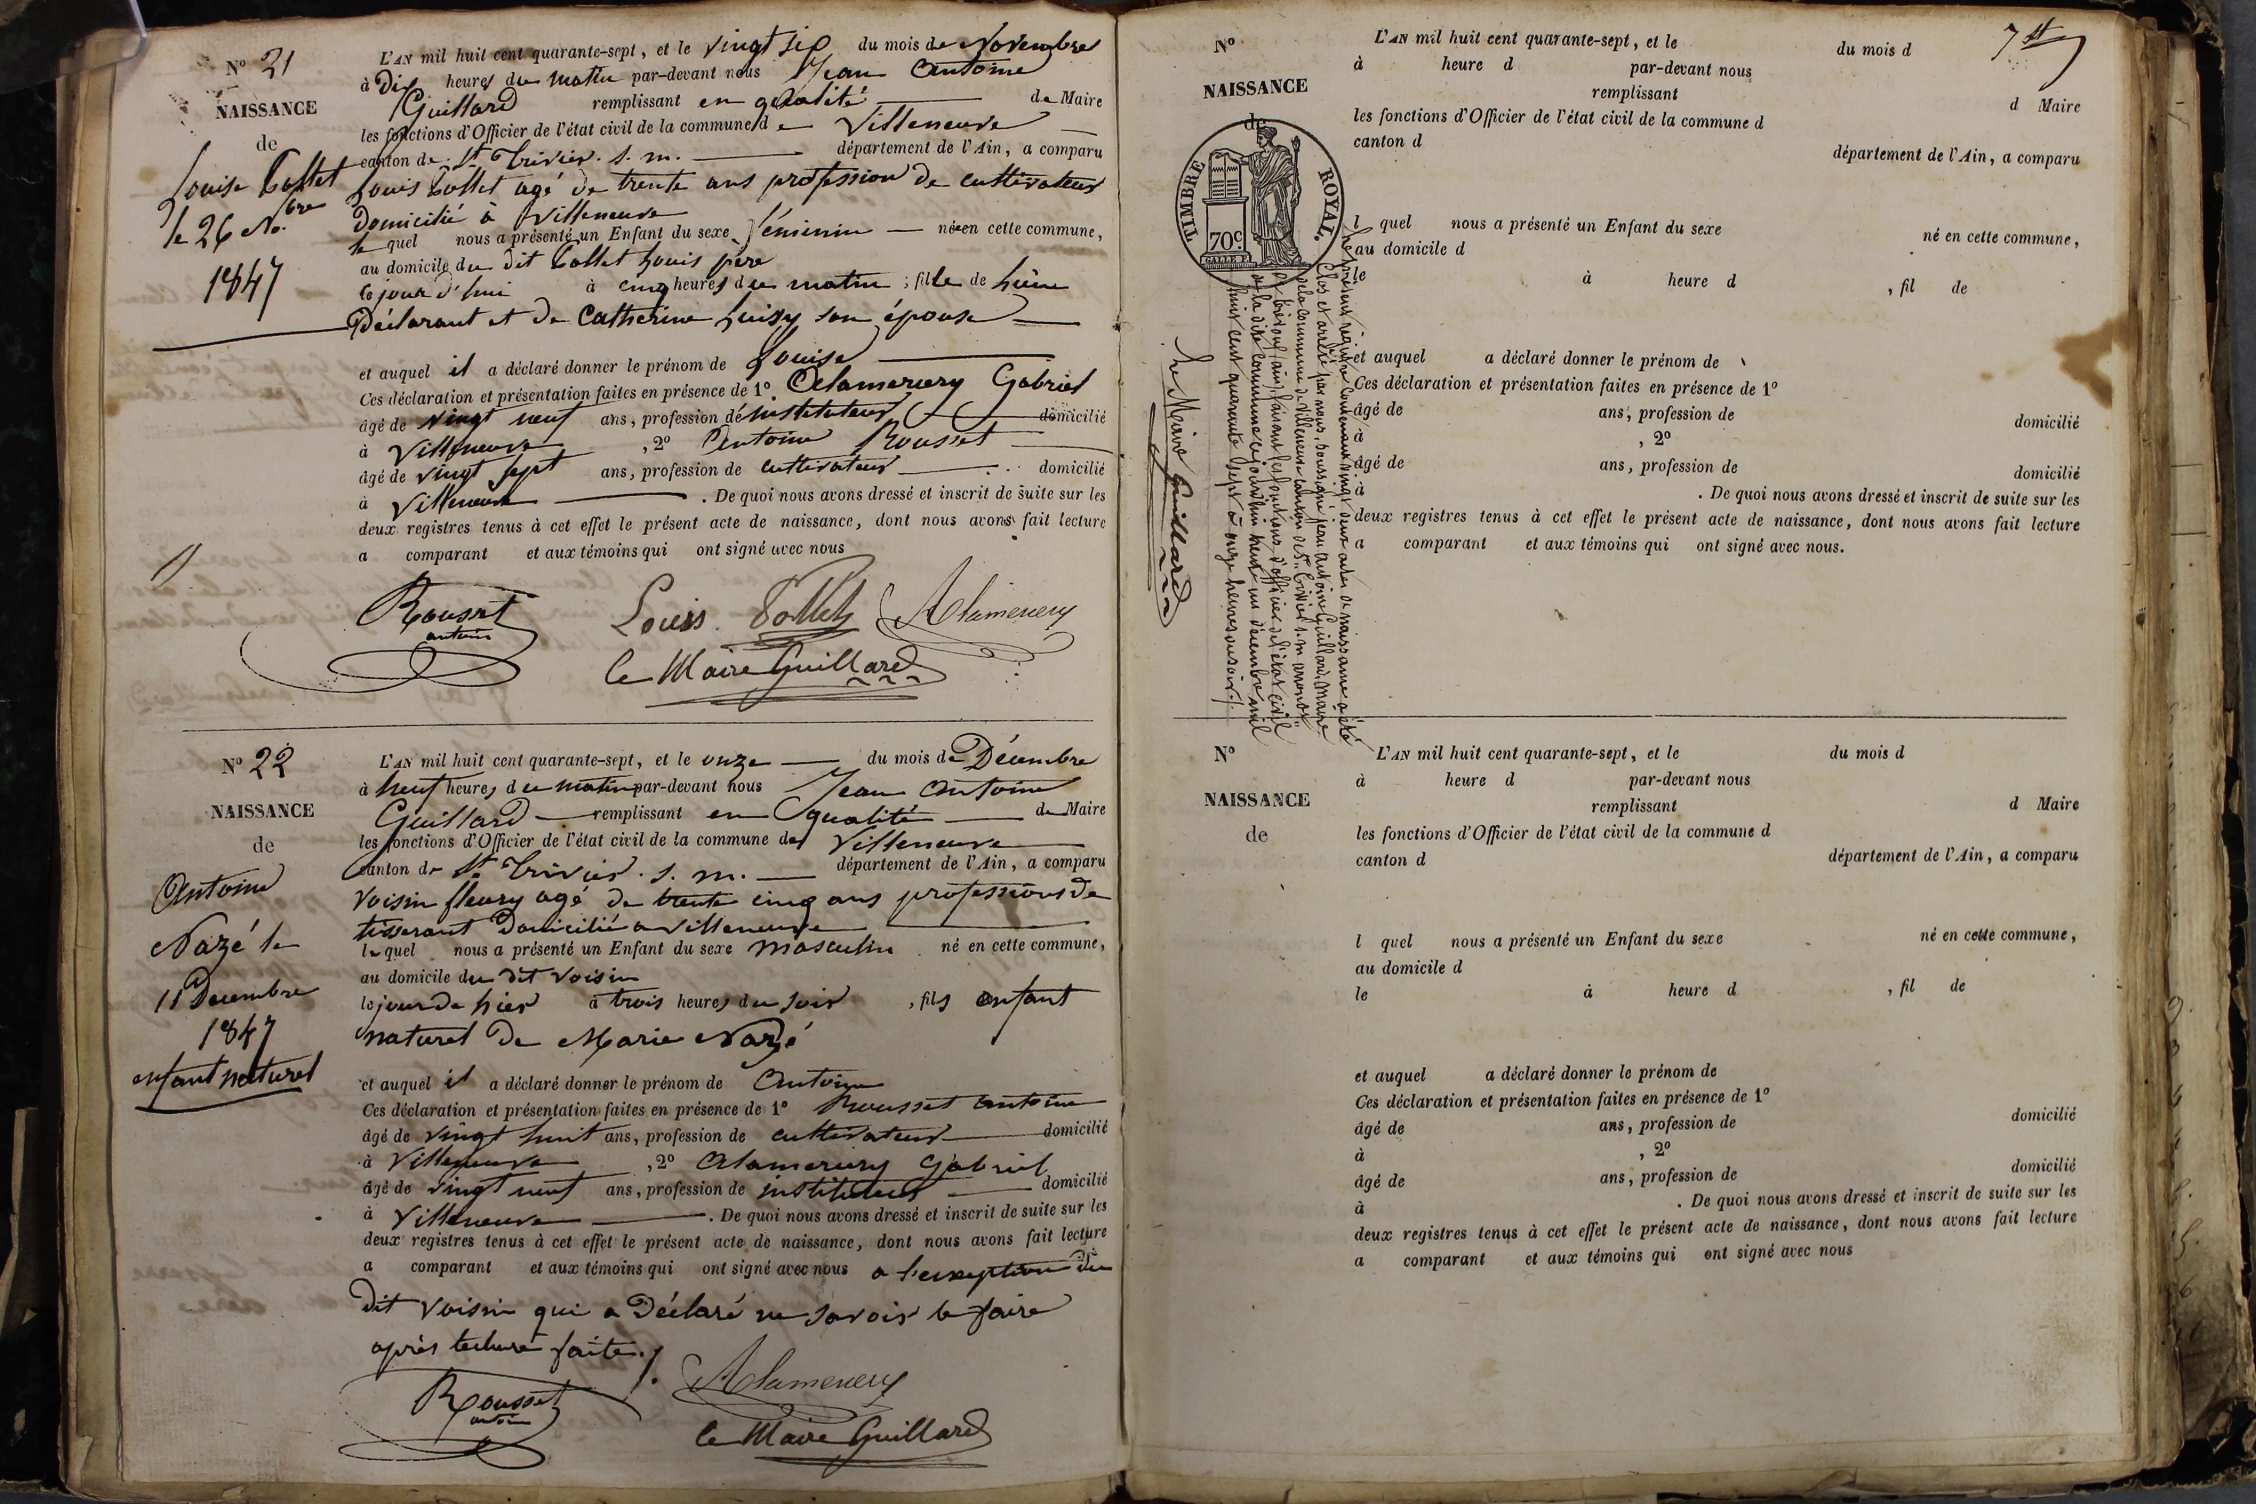 N° 21
NAISSANCE
de
Louise Collet
le 26 9bre
1847
L'AN mil huit cent quarante-sept, et le vingt six du mois de Novembre
à dix heures du matin par-devant nous Jean Antoine
Guillard remplissant en qualité de Maire
les fonctions d'Officier de l'état civil de la commune de Villeneuve
canton de St Trivier. s. m. département de l'Ain, a comparu
Louis Collet agé de trente ans profession de cultivateur
domicilié à Villeneuve
le quel nous a présenté un Enfant du sexe féminin née en cette commune,
au domicile du dit Collet Louis père
ce jour d'hui à cinq heures du matin ; fille de lui
Déclarant et de Catherine son épouse
et auquel il a déclaré donner le prénom de Louise
Ces déclaration et présentation faites en présence de 1° Alamercery Gabriel
âgé de vingt neuf ans, profession de instituteur domicilié
à Villeneuve , 2° Antoine Rousset
âgé de vingt sept ans, profession de cultivateur domicilié
à Villeneuve . De quoi nous avons dressé et inscrit de suite sur les
deux registres tenus à cet effet le présent acte de naissance, dont nous avons fait lecture
a comparant et aux témoins qui ont signé avec nous
Rousset Louis Collet Alamercery
antoine
le Maire Guillard
N° 22
NAISSANCE
de
Antoine
Nazé le
11 Decembre
1847
enfant naturel
L'AN mil huit cent quarante-sept, et le onze du mois de Décembre
à neuf heures du matin par-devant nous Jean Antoine
Guillard remplissant en qualité de Maire
les fonctions d'Officier de l'état civil de la commune de Villeneuve
canton de St Trivier. s. m. département de l'Ain, a comparu
Voisin fleury agé de trente cinq ans profession de
tisserant Domicilié a villeneuve
le quel nous a présenté un Enfant du sexe masculin né en cette commune,
au domicile du dit voisin
le jour de hier à trois heures du soir , fils enfant
naturel de Marie Nazé
et auquel il a déclaré donner le prénom de Antoine
Ces déclaration et présentation faites en présence de 1° Rousset antoine
âgé de vingt huit ans, profession de cultivateur domicilié
à Villeneuve , 2° Alamercery Gabriel
âgé de vingt neuf ans, profession de instituteur domicilié
à Villeneuve . De quoi nous avons dressé et inscrit de suite sur les
deux registres tenus à cet effet le présent acte de naissance, dont nous avons fait lecture
a comparant et aux témoins qui ont signé avec nous a l'exception du
dit Voisin qui a Déclaré ne savoir le faire
après lecture faite./.
Rousset Alamercery
antoine
le Maire Guillard
N°
NAISSANCE
de
TIMBRE ROYAL.
70c.
L'AN mil huit cent quarante-sept, et le du mois d
à heure d par-devant nous
remplissant d Maire
les fonctions d'Officier de l'état civil de la commune d
canton d département de l'Ain, a comparu
l quel nous a présenté un Enfant du sexe né en cette commune,
au domicile d
le à heure d , fil de
et auquel a déclaré donner le prénom de
Ces déclaration et présentation faites en présence de 1°
âgé de ans, profession de domicilié
à , 2°
âgé de ans, profession de domicilié
à . De quoi nous avons dressé et inscrit de suite sur les
deux registres tenus à cet effet le présent acte de naissance, dont nous avons fait lecture
a comparant et aux témoins qui ont signé avec nous.
Le présent registre contenant vingt deux actes de naissance a été
Clos et arrêté par nous, soussigné jean antoine Guillard, Maire
de la commune de Villeneuve canton de St Trivier s. m.
(ain) faisant les fonctions d'officier de l'état civil
de la dite commune cejourd'hui trente un décembre mil
huit cent quarante sept à onze heures du soir./.
le Maire Guillard
N°
NAISSANCE
de
L'AN mil huit cent quarante-sept, et le du mois d
à heure d par-devant nous
remplissant d Maire
les fonctions d'Officier de l'état civil de la commune d
canton d département de l'Ain, a comparu
l quel nous a présenté un Enfant du sexe né en cette commune,
au domicile d
le à heure d , fil de
et auquel a déclaré donner le prénom de
Ces déclaration et présentation faites en présence de 1°
âgé de ans, profession de domicilié
à , 2°
âgé de ans, profession de domicilié
à . De quoi nous avons dressé et inscrit de suite sur les
deux registres tenus à cet effet le présent acte de naissance, dont nous avons fait lecture
a comparant et aux témoins qui ont signé avec nous